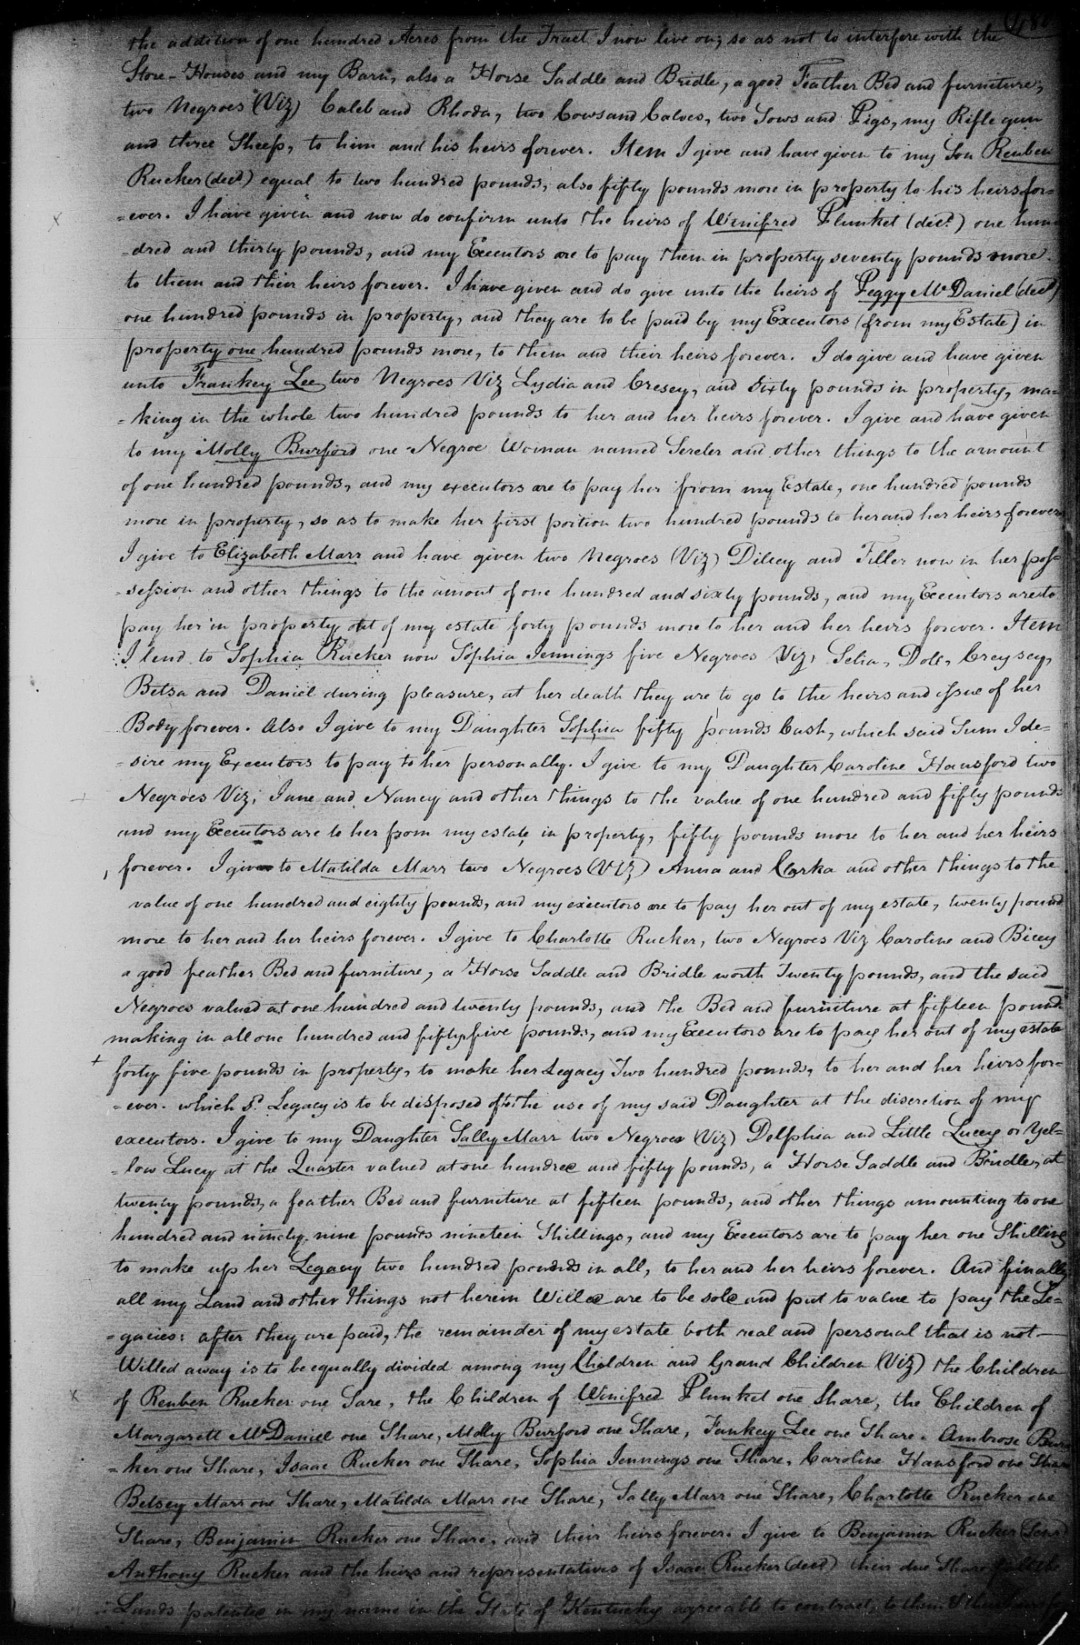 the addition of one hundred Acres from the Tract I now live on, so as not to interfere with the
Store-Houses and my Barn, also a Horse Saddle and Bridle, a good Feather Bed and furniture,
two Negroes (Viz) Caleb and Rhoda, two Cows and Calves, two Sows and Pigs, my Rifle gun
and three Sheep, to him and his heirs forever. Item I give and have given to my Son Reuben
Rucker (decd) equal to two hundred pounds, also fifty pounds more in property to his heirs for-
-ever. I have given and now do confirm unto the heirs of Winifred Plunket (decd) one hun
-dred and thirty pounds, and my Executors are to pay them in property seventy pounds more
to them and their heirs forever. I have given and do give unto the heirs of Peggy McDaniel (decd)
one hundred pounds in property, and they are to be paid by my Executors (from my Estate) in
property one hundred pounds more, to them and their heirs forever. I do give and have given
unto Frankey Lee, two Negroes Viz Lydia and Cresey, and Sixty pounds in property, ma
-king in the whole two hundred pounds to her and her heirs forever. I give and have given
to my Molly Burford one Negroe Woman named Sereler and other things to the amount
of one hundred pounds, and my executors are to pay her from my Estate, one hundred pounds
more in property, so as to make her first portion two hundred pounds to her and her heirs forever
I give to Elizabeth Marr and have given two Negroes (Viz) Dilcey and Filler now in her pos-
-session and other things to the amount of one hundred and sixty pounds, and my Executors are to
pay her in property out of my estate forty pounds more to her and her heirs forever. Item
I lend to Sophia Rucker now Sophia Jennings five Negroes Viz, Selia, Dole, Creysey,
Betsa and Daniel during pleasure, at her death they are to go to the heirs and issue of her
Body forever. Also I give to my Daughter Sophia fifty pounds Cash, which said Sum I de-
-sire my Executors to pay to her personally. I give to my Daughter Caroline Hansford two
Negroes Viz; Jane and Nancy and other things to the value of one hundred and fifty pounds
and my Executors are to her from my estate in property, fifty pounds more to her and her heirs
forever. I give to Matilda Marr two Negroes (Viz) Anna and Clarka and other things to the
value of one hundred and eighty pounds, and my executors are to pay her out of my estate, twenty pound
more to her and her heirs forever. I give to Charlotte Rucker, two Negroes Viz Caroline and Bicey
a good feather Bed and furniture, a Horse Saddle and Bridle worth Twenty pounds, and the said
Negroes valued at one hundred and twenty pounds, and the Bed and furniture at fifteen pounds
making in all one hundred and fifty five pounds, and my Executors are to pay her out of my estate
forty five pounds in property, to make her Legacy Two hundred pounds, to her and her heirs for-
-ever. which sd. Legacy is to be disposed of to the use of my said Daughter at the discretion of my
executors. I give to my Daughter Sally Marr two Negroes (Viz) Dolphia and Little Lucey or Yel-
-low Lucy at the Quarter valued at one hundred and fifty pounds, a Horse Saddle and Bridle, at
twenty pounds, a feather Bed and furniture at fifteen pounds, and other things amounting to one
hundred and ninety nine pounds nineteen Shillings, and my Executors are to pay her one Shilling
to make up her Legacy two hundred pounds in all, to her and her heirs forever. And finally
all my Land and other things not herein Willed are to be sold and put to value to pay the Le-
-gacies: after they are paid, the remainder of my estate both real and personal that is not
Willed away is to be equally divided among my Children and Grand Children (Viz) the Children
of Reuben Rucker one Sare, the Children of Winifred Plunket one Share, the Children of
Margarett McDaniel one Share, Molly Burford one Share, Fankey Lee one Share. Ambrose Ruc
-ker one Share, Isaac Rucker one Share, Sophia Jennings one Share, Caroline Hansford one Share
Betsey Marr one Share, Matilda Marr one Share, Sally Marr one Share, Charlotte Rucker one
Share, Benjamin Rucker one Share, and their heirs forever. I give to Benjamin Rucker (Senr)
Anthony Rucker and the heirs and representatives of Isaac Rucker (decd) their due Share of all the
Lands patented in my name in the State of Kentucky agreeable to contract, to them & their heirs for